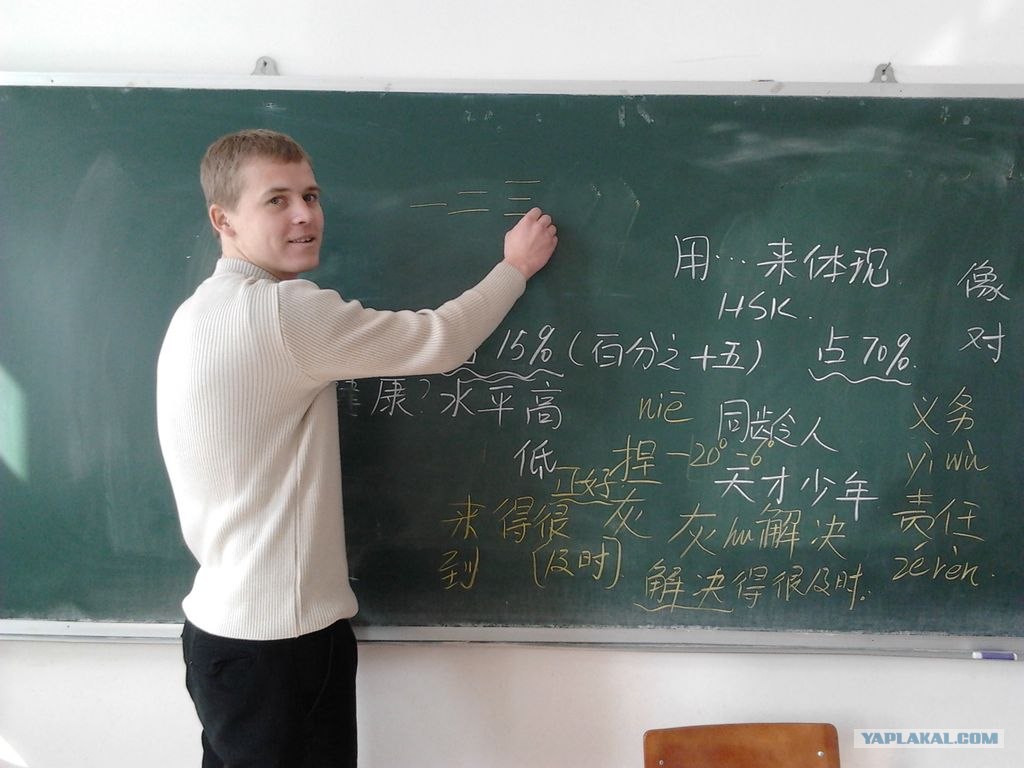 一 二 三
用…来体现
HSK.
像
对
15%(百分之十五)
点70%.
康?水平高
低
niē
捏
-20° -6°
同龄人
天才少年
义务
yì wù
责任
zé rèn.
正好
来得很
到
(及时)
灰
灰hu解决
解决得很及时.
YAPLAKAL.COM